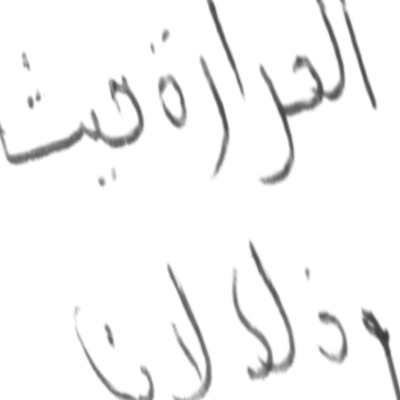 الحرارة حيث
وذلك لأن